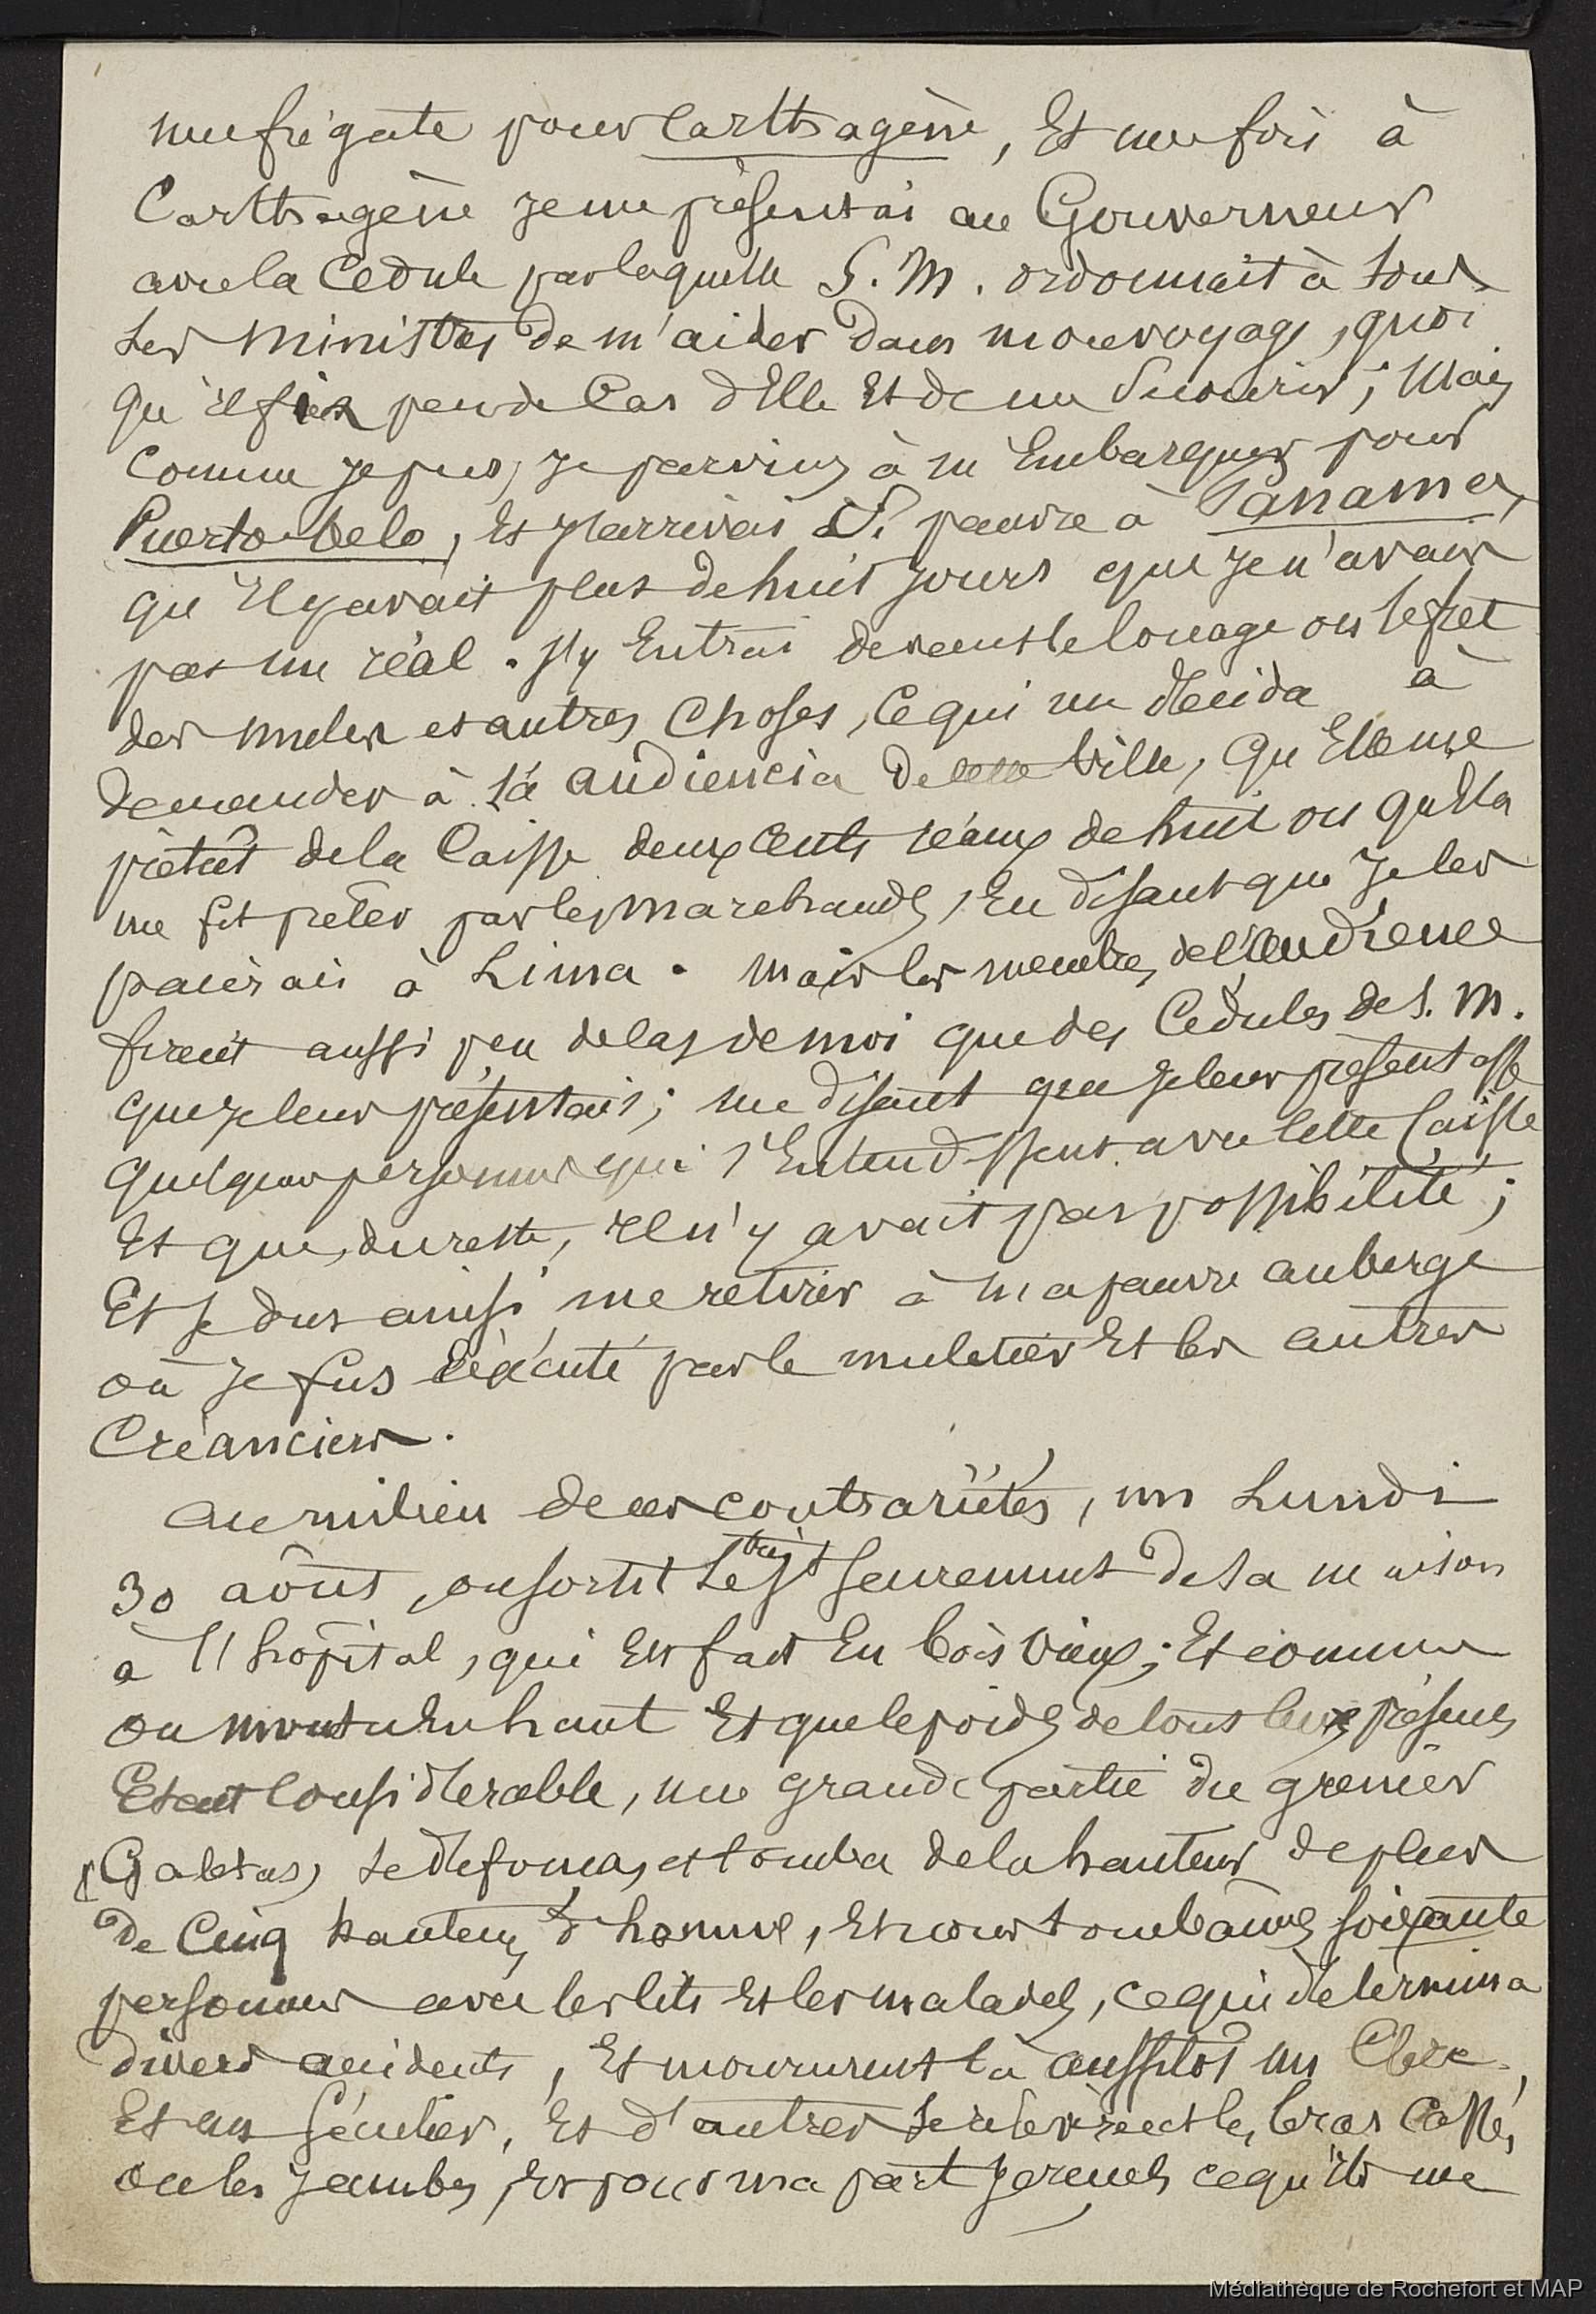 une frégate pour Carthagène, Et une fois à
Carthagène je me présentai au Gouverneur
avec la Cedule par laquelle S. M. ordonnait à tous
ses Ministres de m'aider dans mon voyage, quoi
qu'il fit peu de Cas d'Elle Et de me Secourir; Mais
Comme je pus, je parvins à m'Embarquer pour
Puerto-belo, Et j'arrivai Si pauvre à Panama,
qu'Il y avait plus de huit jours que je n'avais
pas un réal. J'y Entrai devant le louage ou le fret
des mules et autres Choses, Ce qui me décida à
demander à la audiencia de cette Ville, qu'Elle me
prêtât de la Caisse deux Cents réaux de huit ou qu'Ella
me fit prêter par les Marchands, En disant que Je les
paierais à Lima. Mais les membres de l'Audience
firent aussi peu de Cas de moi que des Cedules de S. M.
que je leur présentais; me disant que je leur présentasse
quelques personnes qui s'Entendissent avec cette Caisse
Et que, du reste, Il n'y avait pas possibilité;
Et Je dus ainsi me retirer à ma pauvre auberge
où Je fus éxécuté par le muletier Et les autres
Créanciers.
Au milieu de ces contrariétés, un Lundi
30 août, on sortit le très St Sacrement de sa maison
à l'hôpital, qui Est fait En bois vieux; Et comme
on monta En haut Et que le poids de tous les présents
Etait Considérable, une grande partie du grenier
(Galetas) se défonça, et tomba de la hauteur de plus
de Cinq hauteurs d'homme, Et nous tombâmes soixante
personnes avec les lits Et les malades, ce qui détermina
divers accidents, Et moururent là aussitôt un Clerc,
Et un Séculier, Et d'autres se relevèrent les bras Cassés
ou les jambes, Et pour ma part je rendis ce qu'ils me